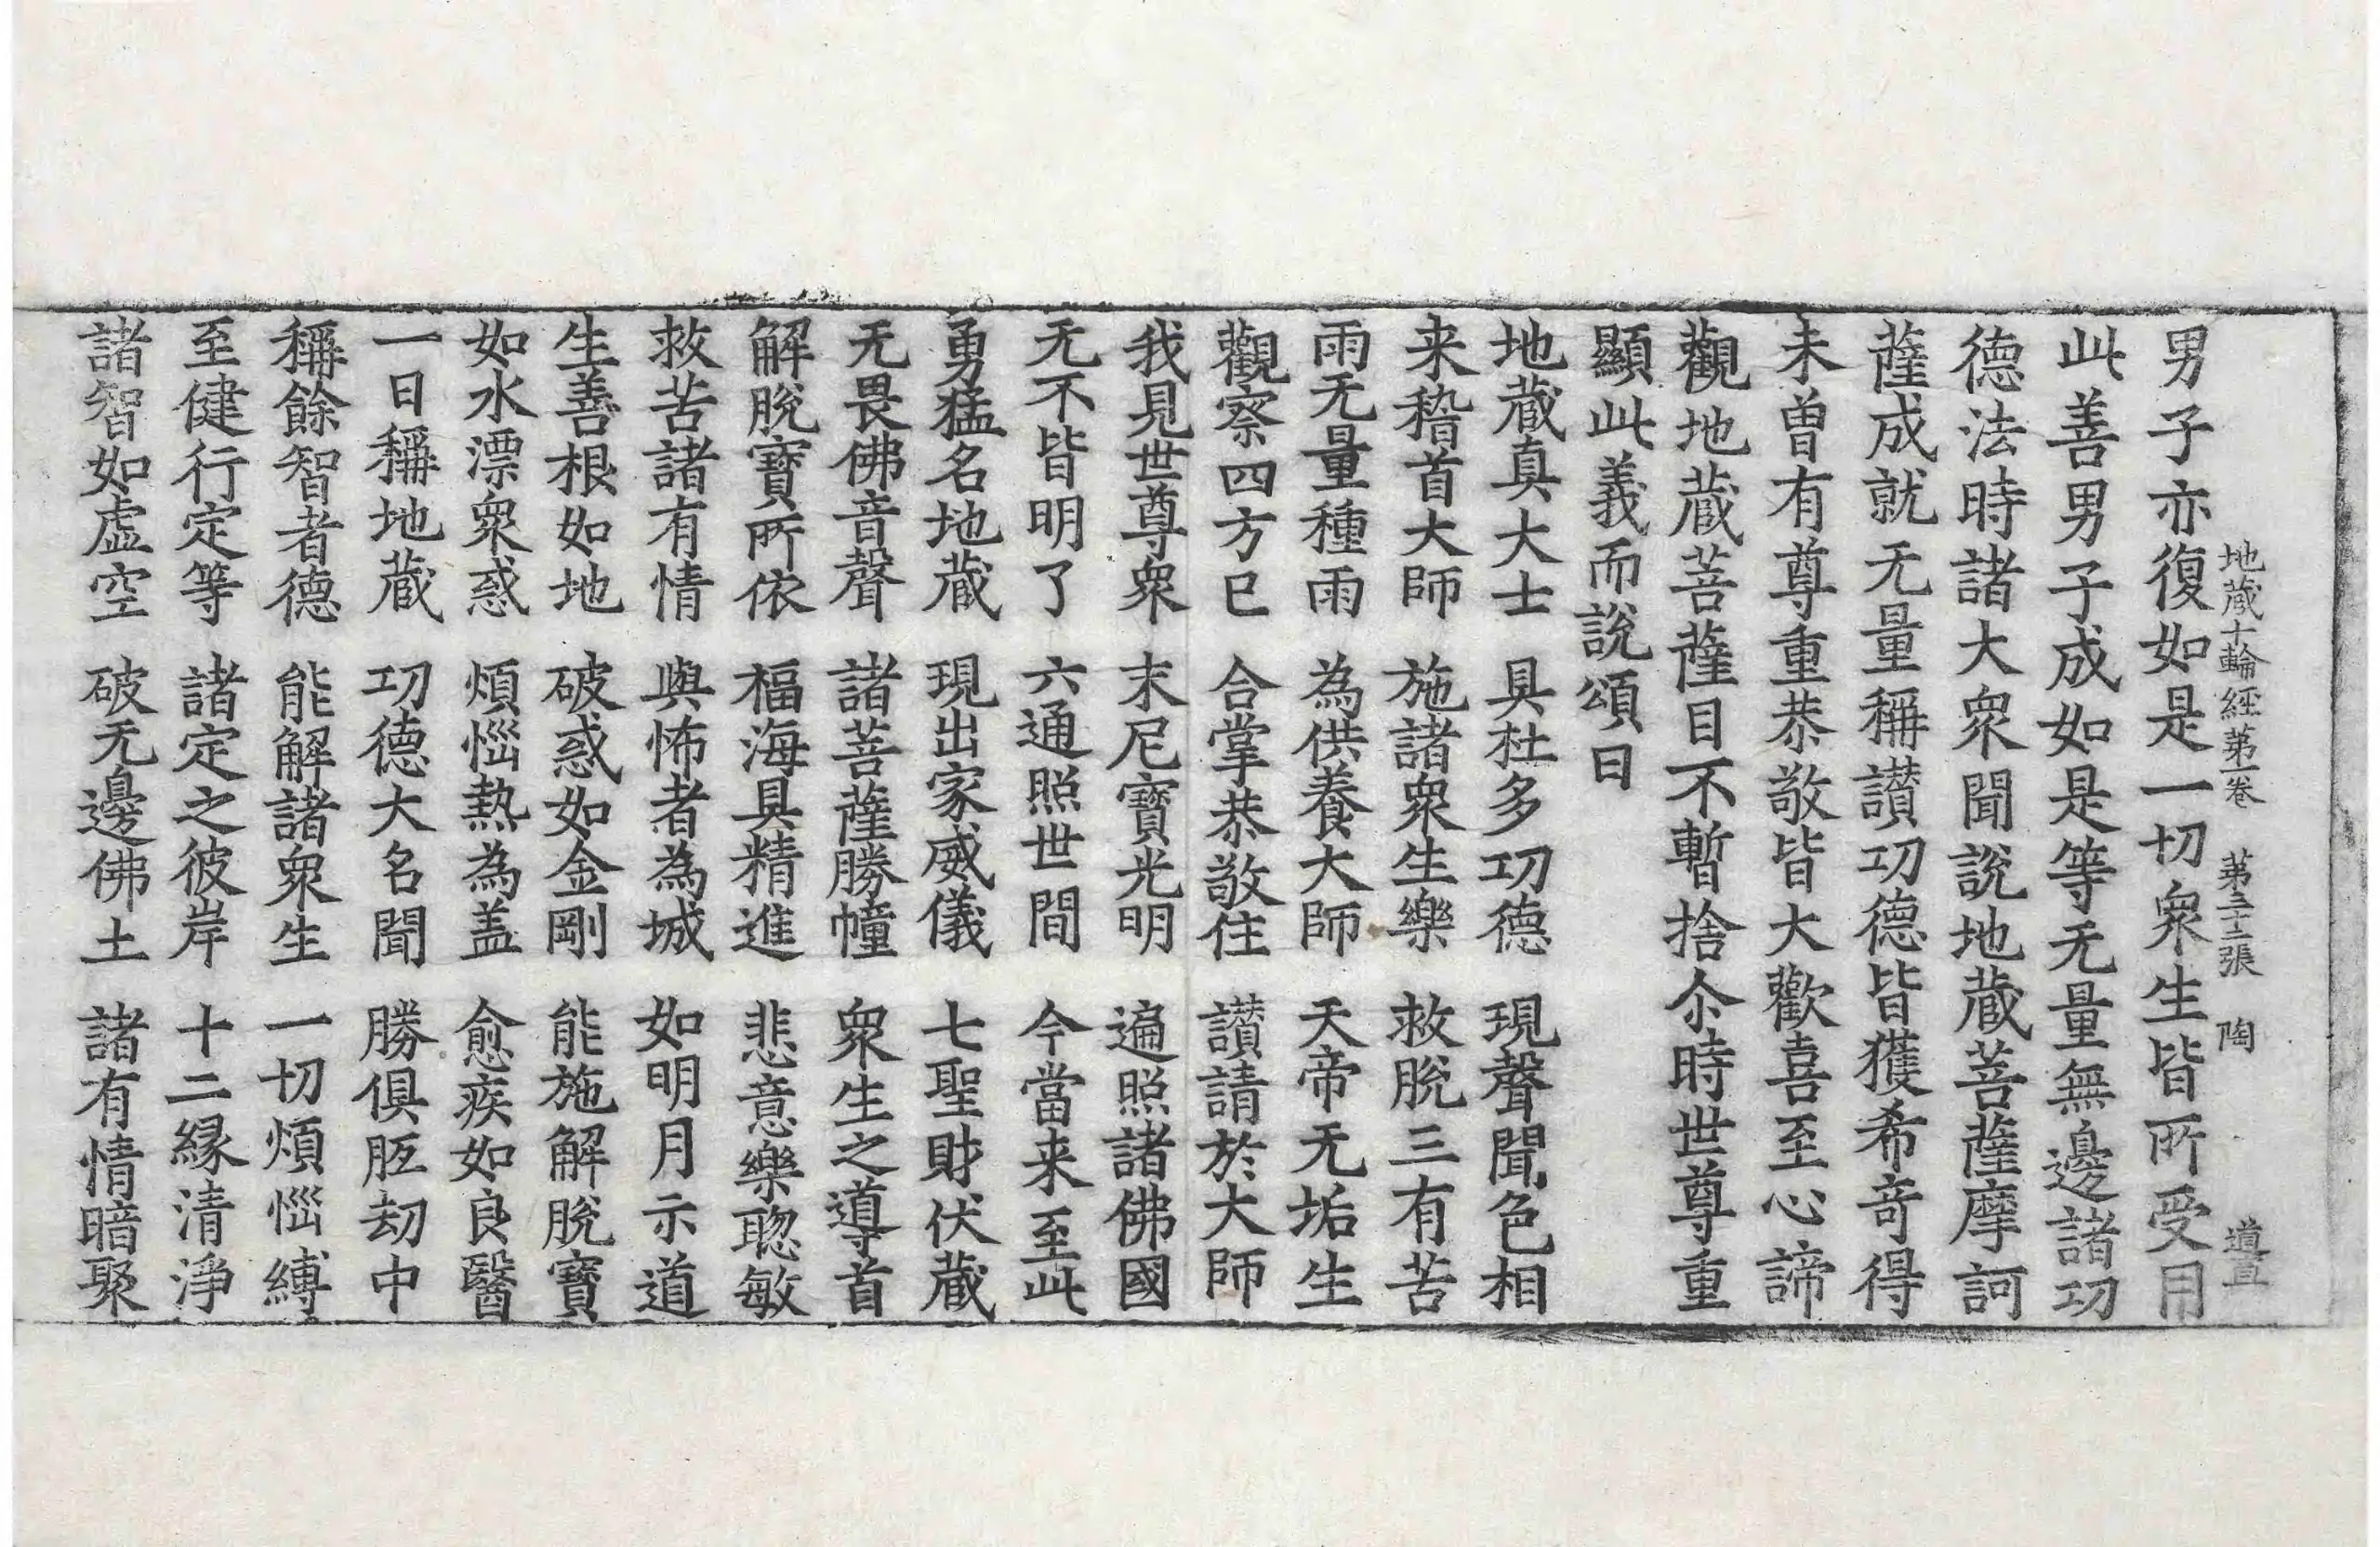 男子亦復如是一切衆生皆所受用
地藏十輪經第一卷 第二十二張 陶 道直
此善男子成如是等无量無邊諸功
德法時諸大衆聞說地蔵菩薩摩訶
薩成就无量稱讃功德皆獲希竒得
未曽有尊重恭敬皆大歡喜至心諦
觀地蔵菩薩目不暫捨尒時世尊重
顯此義而說頌曰
地蔵真大士 具杜多功德 現聲聞色相
来稽首大師 施諸衆生樂 救脫三有苦
雨无量種雨 為供養大師 天帝无垢生
觀察四方已 合掌恭敬住 讃請於大師
我見世尊衆 末尼寶光明 遍照諸佛國
无不皆明了 六通照世間 今當来至此
勇猛名地蔵 現出家威儀 七聖財伏蔵
无畏佛音聲 諸菩薩勝幢 衆生之導首
解脫寶所依 福海具精進 悲意樂聦敏
救苦諸有情 與怖者為城 如明月示道
生善根如地 破惑如金剛 能施解脫寶
如水漂衆惑 煩惱熱為盖 愈疾如良醫
一日稱地蔵 功德大名聞 勝俱胝劫中
稱餘智者德 能解諸衆生 一切煩惱縛
至健行定等 諸定之彼岸 十二縁清淨
諸智如虛空 破无邊佛土 諸有情暗聚